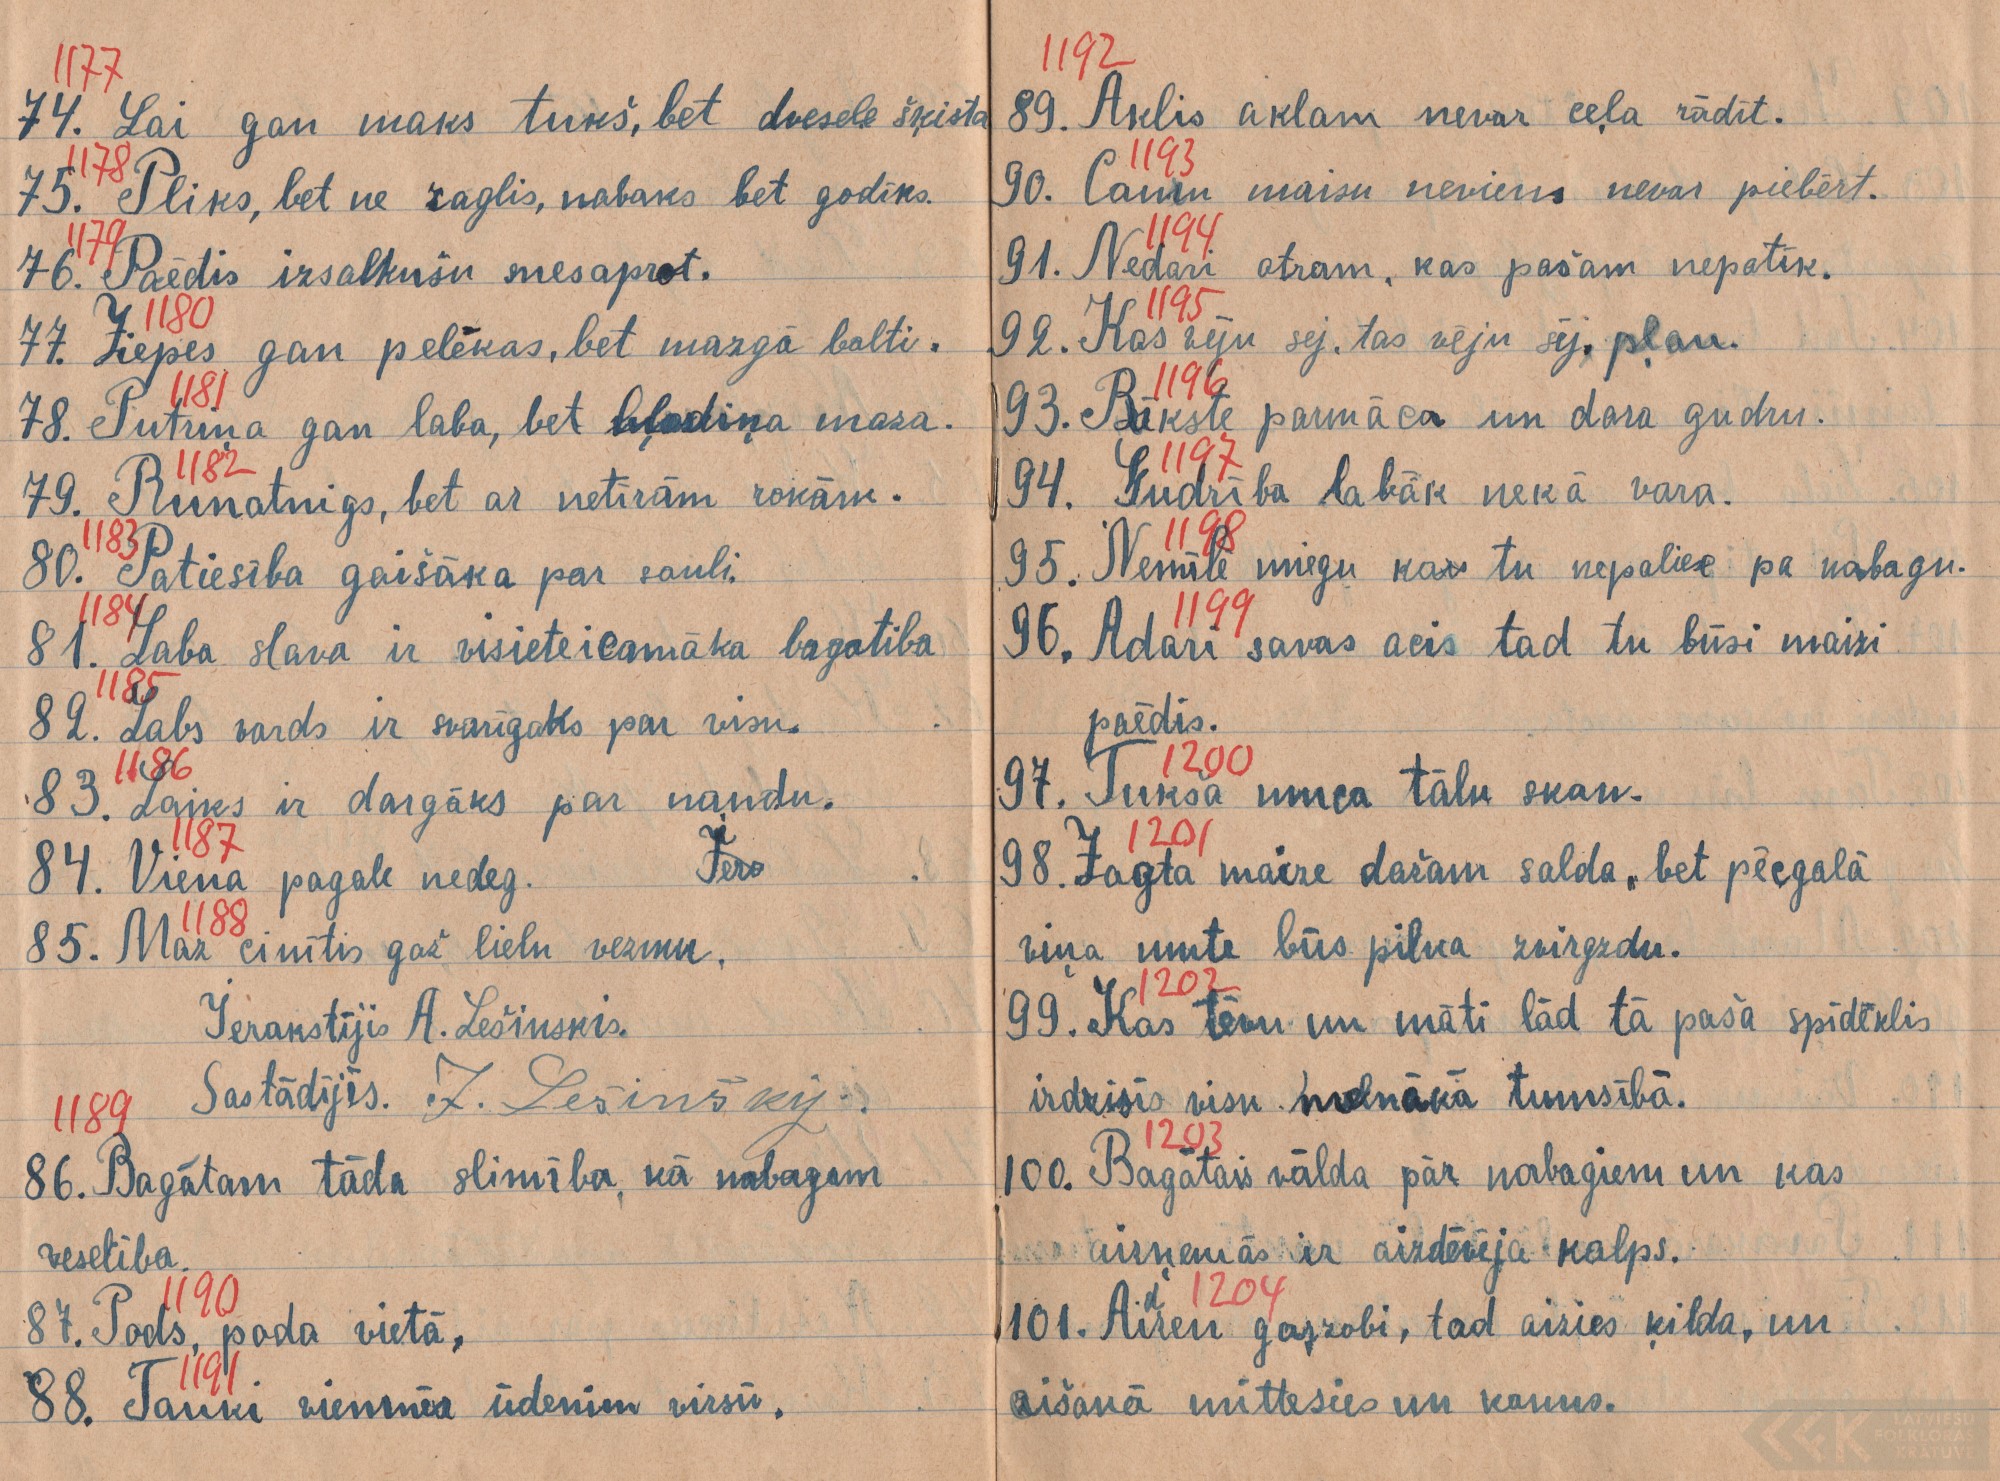 1177
74. Lai gan maks tukš, bet dvesele šķista
1178
75. Pliks, bet ne zaglis, nabaks bet godīks.
1179
76. Paēdis izsalkušu nesaprot.
1180
77. Ziepes gan pelēkas, bet mazgā balti.
1181
78. Putriņa gan laba, bet bļodiņa maza.
1182
79. Runatnigs, bet ar netīrām rokām.
1183
80. Patiesība gaišāka par sauli.
1184
81. Laba slava ir visieteicamāka bagatiba
1185
82. Labs vards ir svarīgaks par visu.
1186
83. Laiks ir dargāks par naudu.
1187
84. Viena pagale nedeg.
1188
85. Maz cinītis gaž lielu vezmu.
Ierakstījis A. Lešinskis.
Sastādījis. J. Lešinškij.
1189
86. Bagātam tāda slimība, kā nabagam
veselība.
1190
87. Pods, poda vietā,
1191
88. Tauki vienmēr ūdenim virsū.
1192
89. Aklis aklam nevar ceļa rādīt.
1193
90. Cauru maisu neviens nevar piebērt.
1194
91. Nedari otram, kas pašam nepatīk.
1195
92. Kas vēju sēj, tas vēju sēj, pļau.
1196
93. Bēkste parmāca un dara gudru.
1197
94. Gudrība labāk nekā vara.
1198
95. Nemīle miegu kas tu nepaliec pa nabagu.
1199
96. Adari savas acis tad tu būsi maizi
paēdis.
1200
97. Tukša muca tālu skan.
1201
98. Zagta maize dažam salda, bet pēcgalā
viņa mute būs pilna zvirgzdu.
1202
99. Kas tēvu un māti lād tā paša spīdēklis
irdzisīs visu melnākā tumsībā.
1203
100. Bagātais vālda pār nabagiem un kas
aizņemās ir aizdēvēja kalps.
1204
101. Aizen gazzobi, tad aizies ķilda, un
aišanā mittesies un kauns.
LATVIEŠU
FOLKLORAS
KRĀTUVE